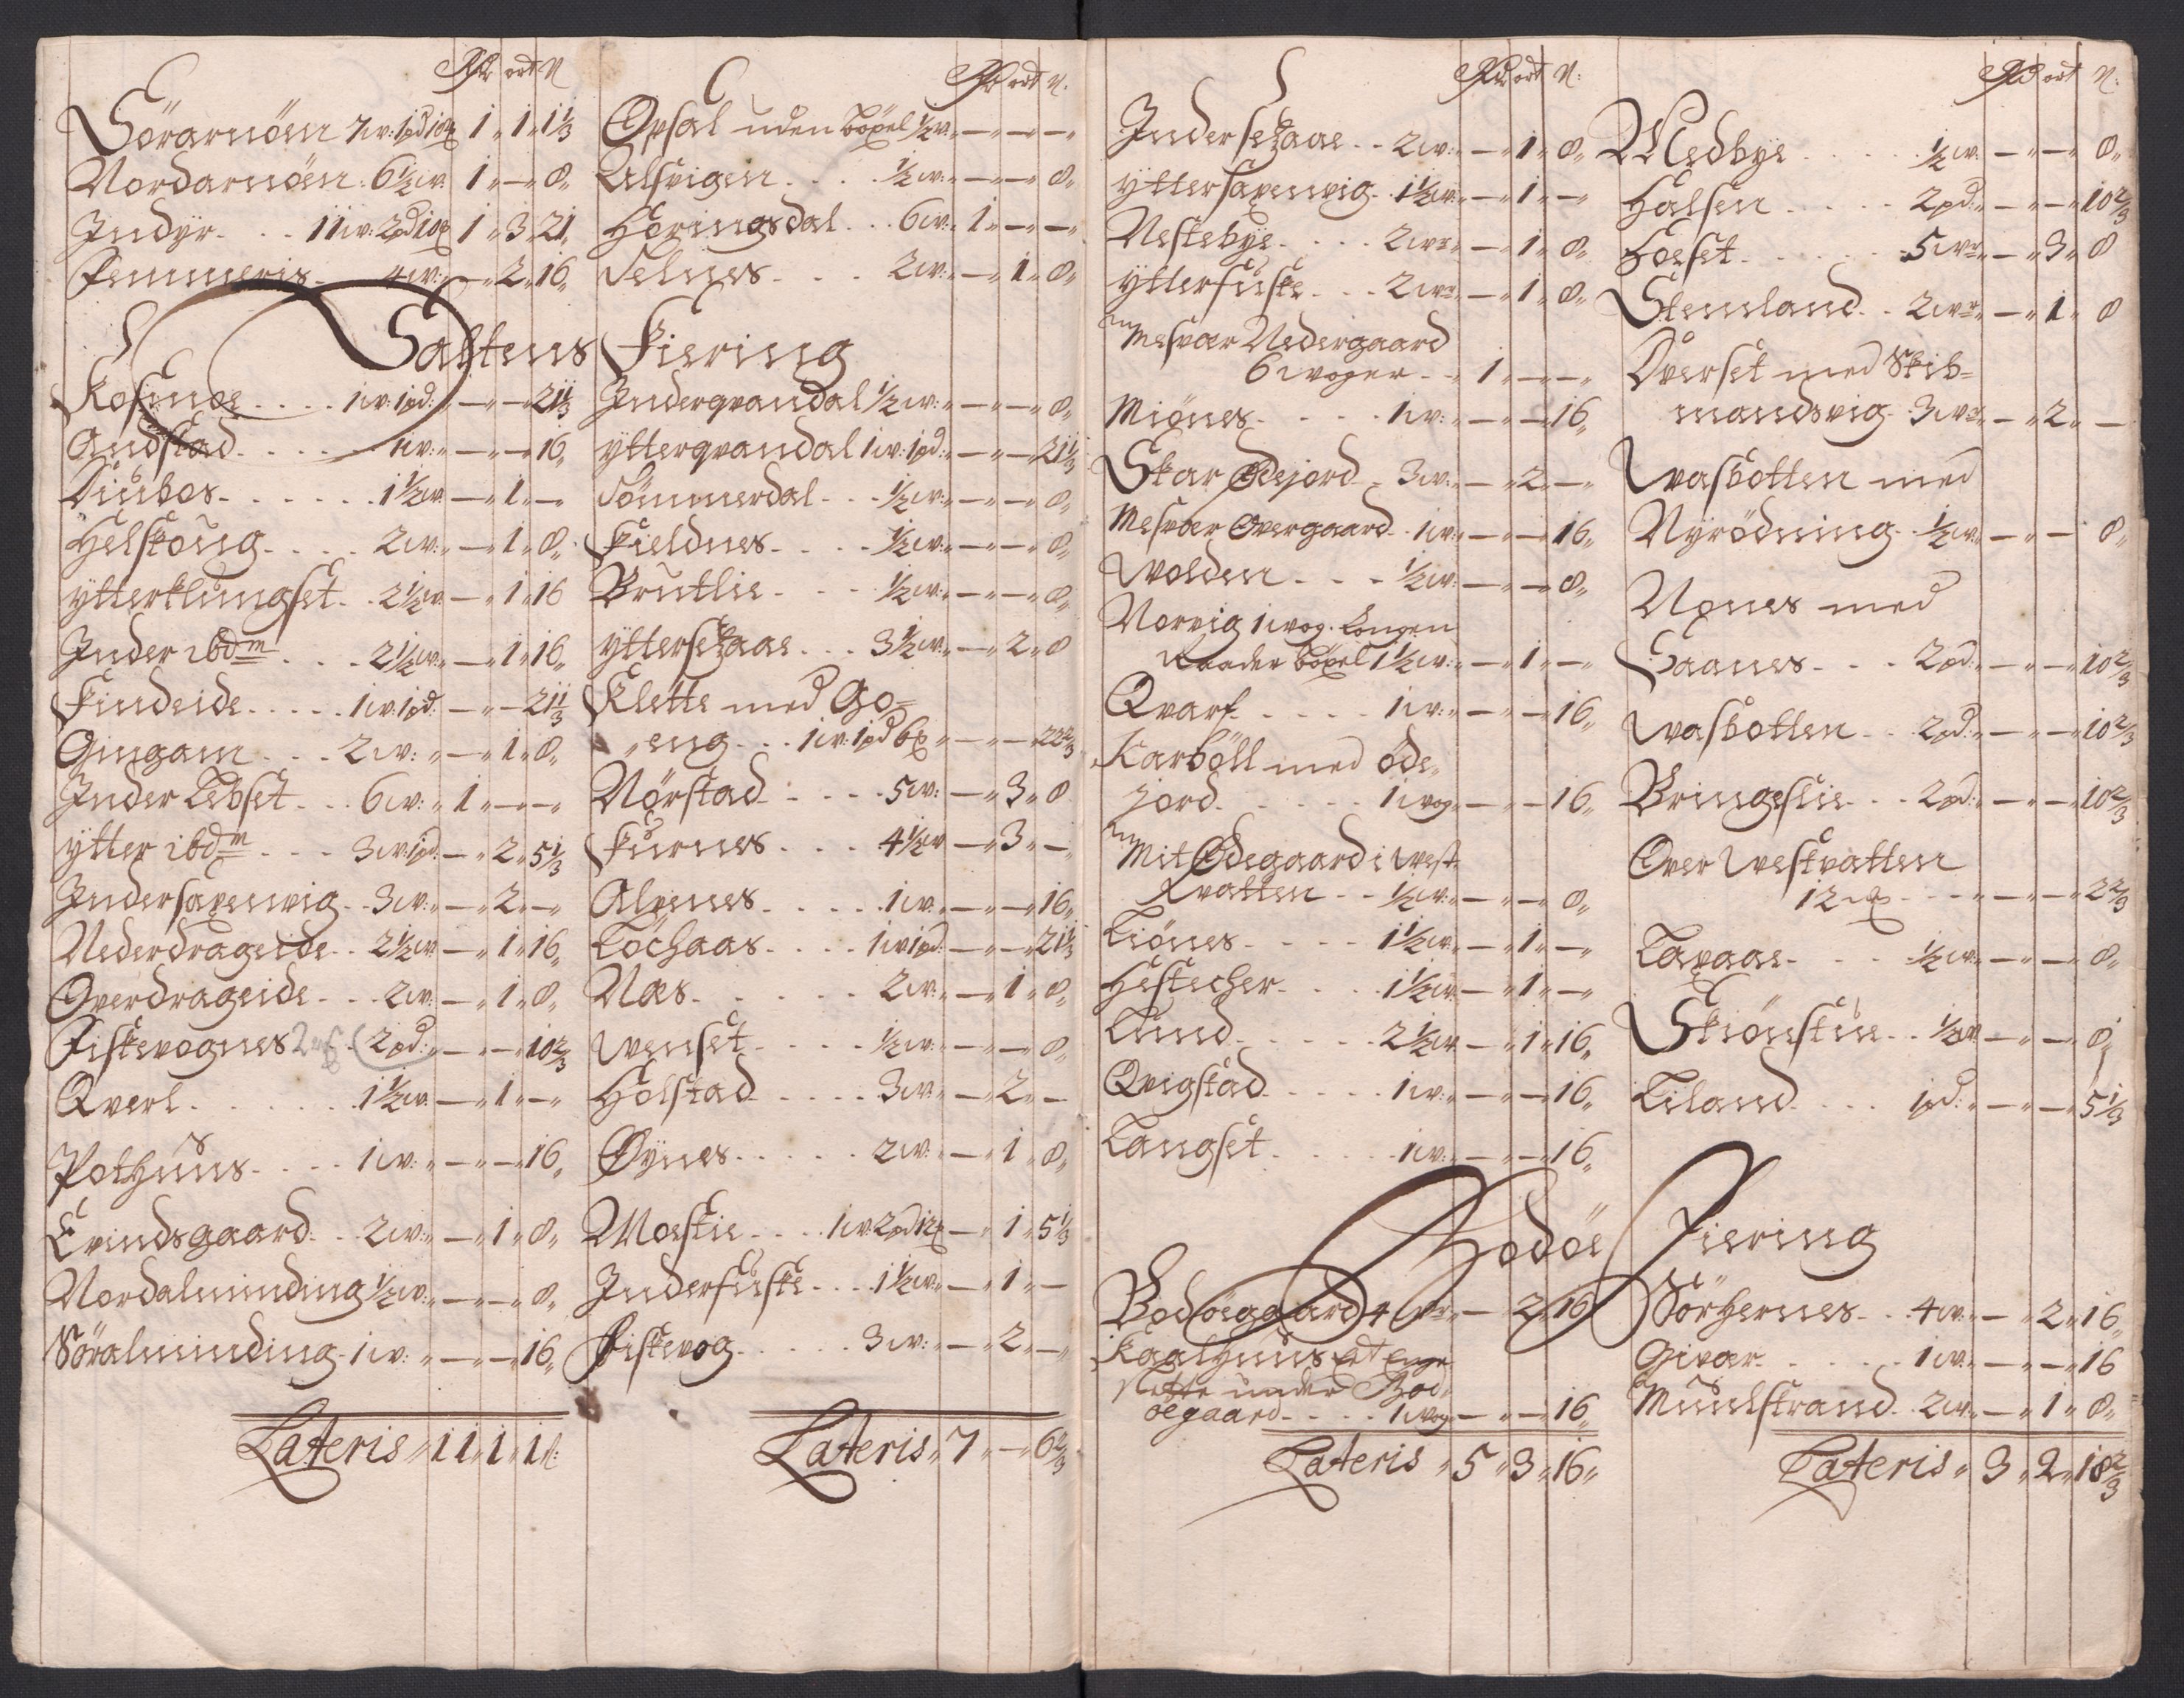 Rdr ort ß
Sörarnöen 7w: 1pd 10m 1 1 1⅓
Nordarnöen 6½w: 1 - 8
Indÿr 11w: 2pd 10m 1 3 21
Femmeris 4w: - 2 16
Saltens Fiering
Kosmoe 1w: 1pd: - - 21⅓
Andstad 1w: - - 16
Diubos 1½w: - 1 -
Helskong 2w: - 1 8
ÿtterklungset 2½w: - 1 16
Inder ibdm 2½w: - 1 16
Findeide 1w: 1pd: - - 21⅓
Gingam 2w: - 1 8
Inder Lebset 6w: 1 - -
ÿtter ibdm 3w: 1pd: - 2 5⅓
Indersaxenvig 3w: - 2 -
Nederdrageide 2½w: - 1 16
Overdrageide 2w: - 1 8
Fiskevognes 2pd: - - 10⅔
Qverl 1½w: - 1 -
Pothuus 1w: - - 16
Evindsgaard 2w: - 1 8
Nordalminding ½w: - - 8
Söralminding 1w: - - 16
Lateris 11 1 1
Rdr ort ß
Opsal uden böxel ½w: - - -
Alsvigen ½w: - - 8
Höringsdal 6w: 1 - -
Selnes 2w: - 1 8
Inderqvandal ½w: - - 8
ÿtterqvandal 1w: 1pd: - - 21⅓
Sömmerdal ½w: - - 8
Fieldnes ½w: - - 8
Brutlie ½w: - - 8
ÿttersetaae 3½w: - 2 8
Klette med Go=
eng 1w: 1pd 6m - - 22⅔
Nörstad 5w: - 3 8
Furnes 4½w - 3 -
Alvenes 1w: - - 16
Löchaas 1w: 1pd: - - 21⅓
Nes 2w: - 1 8
Wenset ½w: - - 8
Holstad 3w: - 2 -
Øÿnes 2w: - 1 8
Moeslie 1w: 2pd 12m - 1 5⅓
Inderfuske 1½w: - 1 -
Fiskevog 3w: - 2 -
Lateris 7 - 6⅔
Rdr ort ß:
Indersetaae 2w: - 1 8
ÿttersaxenvig 1½w: - 1 -
Nestebÿe 2wr - 1 8
ÿtterfuske 2wr - 1 8
Mesvær Nedergaard
6 woger 1 - -
Miönes 1w: - - 16
Skar Ødejord 3w: - 2 -
Mesvær Overgaard 1w: - - 16
Wolden ½w: - - 8
Norvig 1 wog Longen
Raader böxel 1½w: - 1 -
Qvarf 1w: - - 16
Karböll med öde
jord 1 wog - - 16
Mit Ødegaard i West
Vatten ½w: - - 8
Liönes 1½w: - 1 -
Hestecher 1½w: - 1 -
Lund 2½w: - 1 16
Qvigstad 1w: - - 16
Langset 1w: - - 16
Bodöe Fiering
Bodöegaard 4wr - 2 16
Kaalhuus et Enge
slette under Bod
öegaard 1 wog - - 16
Lateris 5 3 16
Rdr ort ß:
Medbÿe ½w: - - 8
Halsen 2pd: - - 10⅔
Hoeset 5wr - 3 8
Stemland 2wr - 1 8
Överset med Skib=
mandsvig 3wr - 2 -
Wasbotten med
Nÿrödning ½w: - - 8
Upnes med
Saanes 2pd: - - 10⅔
Wasbotten 2pd: - - 10⅔
Bringeslie 2pd: - - 10⅔
Over Westvatten
12m - - 2⅔
Laxaae ½w: - - 8
Skiönstue ½w - - 8
Liland 1pd: - - 5⅓
Sörhernes 4w: - 2 16
Givær 1w: - - 16
Muulstrand 2w: - 1 8
Lateris 3 2 18⅔